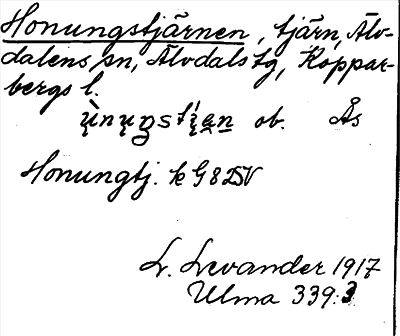 Honungstjärnen, tjärn, Älv-
dalens sn, Älvdals tg, Koppar-
bergs l.
ob. Ås
Honungtj. k G82SV
L. Levander 1917
Ulma 339:3